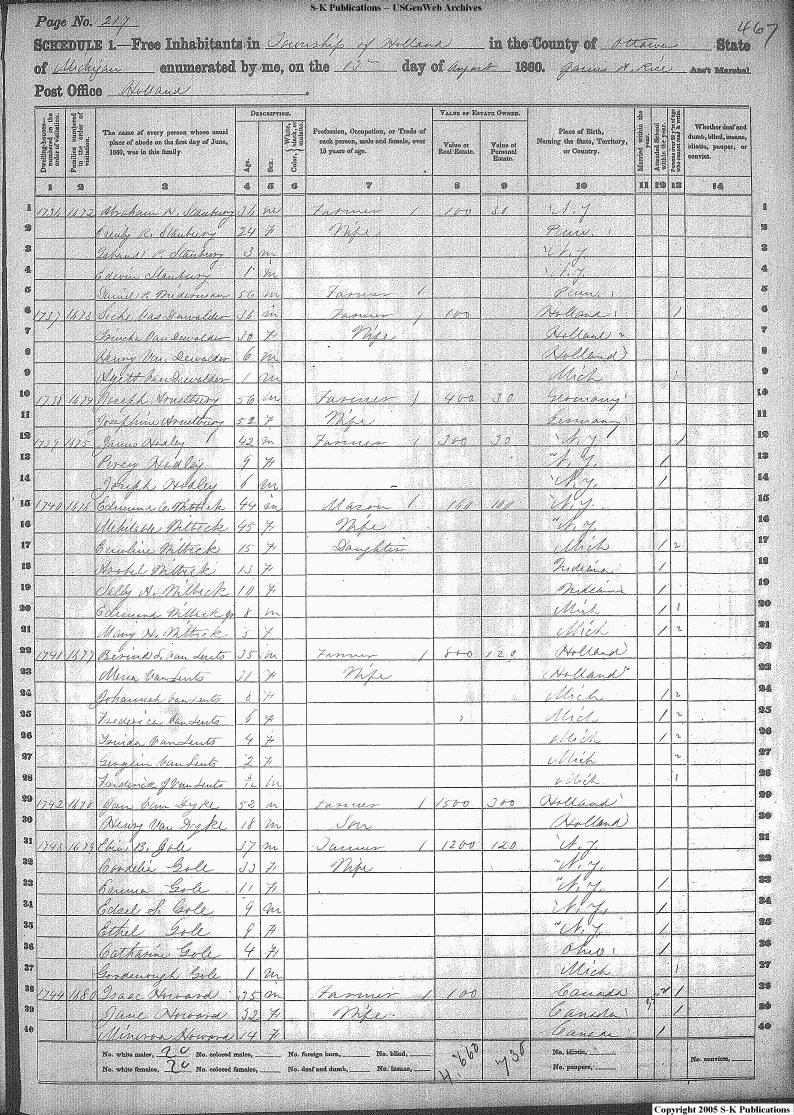 S-K Publications – USGenWeb Archives
Page No. 217
467
SCHEDULE 1.—Free Inhabitants in Township of Holland in the County of Ottawa State
of Michigan enumerated by me, on the 13th day of August 1860. Ass't Marshal.
Post Office Holland
DESCRIPTION. VALUE OF ESTATE OWNED.
Dwelling-houses—numbered in the order of visitation. Families numbered in the order of visitation. The name of every person whose usual place of abode on the first day of June, 1860, was in this family. Age. Sex. Color, White, black, or mulatto. Profession, Occupation, or Trade of each person, male and female, over 15 years of age. Value of Real Estate. Value of Personal Estate. Place of Birth, Naming the State, Territory, or Country. Married within the year. Attended School within the year. Persons over 20 y'rs of age who cannot read & write. Whether deaf and dumb, blind, insane, idiotic, pauper, or convict.
1 2 3 4 5 6 7 8 9 10 11 12 13 14
1 1736 1672 Abraham N. Stanbury 36 m Farmer 1 100 30 N.Y. 1
2 R. Stanbury 24 f Wife Penn. 2
3 Stanbury 3 m N.Y. 3
4 Edwin Stanbury 1 m N.Y. 4
5 Daniel P. 56 m Farmer 1 Penn. 5
6 1737 1673 35 m Farmer 1 100 Holland 1 6
7 Van Dewalder 30 f Wife Holland 2 7
8 Henry Van Dewalder 6 m Holland 8
9 Van Dewalder 1 m Mich 9
10 1738 1674 Joseph 56 m Farmer 1 400 30 Germany 10
11 Josephine 52 f Wife Germany 11
12 1739 1675 James Hodley 42 m Farmer 1 300 30 N.Y. 1 12
13 Percy Hodley 9 f N.Y. 1 13
14 Joseph Hodley 6 m N.Y. 1 14
15 1740 1676 Edmund C. Wilbick 44 m Mason 1 160 100 N.Y. 15
16 Mehitable Wilbick 45 f Wife N.Y. 16
17 Emeline Wilbick 15 f Daughter Mich 1 2 17
18 Isabel Wilbick 13 f Indiana 1 18
19 Sally A. Wilbick 10 f Indiana 1 19
20 Edmund Wilbick Jr 8 m Mich 1 1 20
21 Mary H. Wilbick 5 f Mich 1 2 21
22 1741 1677 Van Lents 35 m Farmer 1 800 120 Holland 22
23 Mena Van Lents 31 f Wife Holland 23
24 Johannah Van Lents 8 f Mich 1 2 24
25 Frederica Van Lents 6 f Mich 1 2 25
26 Van Lents 4 f Mich 1 2 26
27 Van Lents 2 f Mich 2 27
28 Frederick J Van Lents m Mich 1 28
29 1742 1678 Jan Van Dyke 52 m Farmer 1 1500 300 Holland 29
30 Henry Van Dyke 18 m Son Holland 30
31 1743 1679 Eben B. Gole 37 m Farmer 1 1200 120 N.Y. 31
32 Cordelia Gole 33 f Wife N.Y. 32
33 Emma Gole 11 f N.Y. 1 33
34 Edsel S. Gole 9 m N.Y. 1 34
35 Ethel Gole 9 f N.Y. 1 35
36 Catharine Gole 4 f Ohio 1 36
37 Goodenough Gole 1 m Mich 1 37
38 1744 1680 Isaac Howard 35 m Farmer 1 100 Canada 1 38
39 Jane Howard 32 f Wife Canada 1 39
40 Minerva Howard 14 f Canada 1 40
No. white males, 20 No. colored males, No. foreign born, No. blind, 4.660 730 No. idiotic, No. convicts,
No. white females, 20 No. colored females, No. deaf and dumb, No. insane, No. paupers,
Copyright 2005 S-K Publications